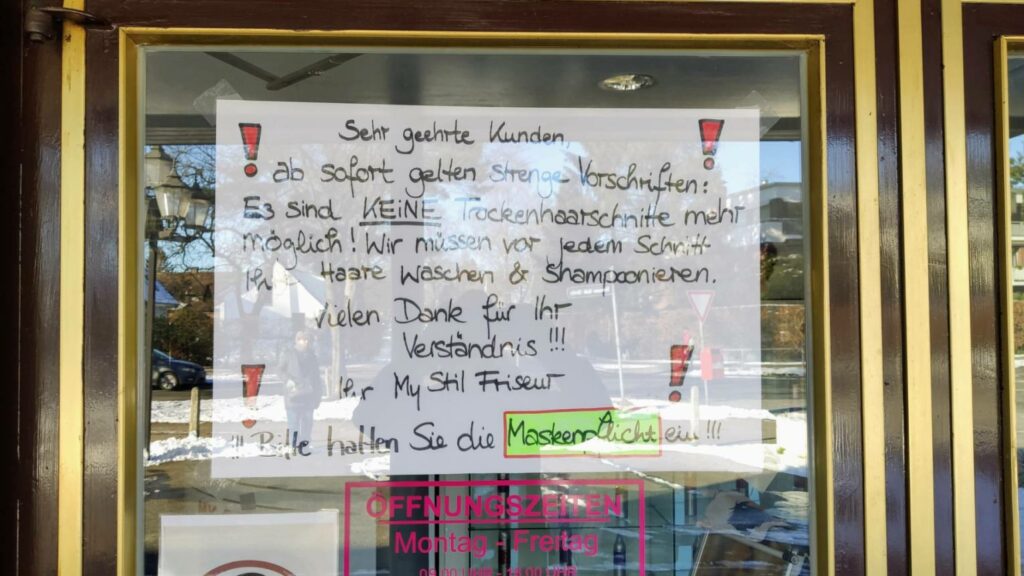 Sehr geehrte Kunden,
ab sofort gelten strenge Vorschriften:
Es sind KEINE Trockenhaarschnitte mehr
möglich! Wir müssen vor jedem Schnitt
Ihr Haare waschen & Shampoonieren.
Vielen Dank für Ihr
Verständnis!!!
Ihr My Stil Friseur
!!! Bitte halten Sie die Maskenpflicht ein!!!
ÖFFNUNGSZEITEN
Montag - Freitag